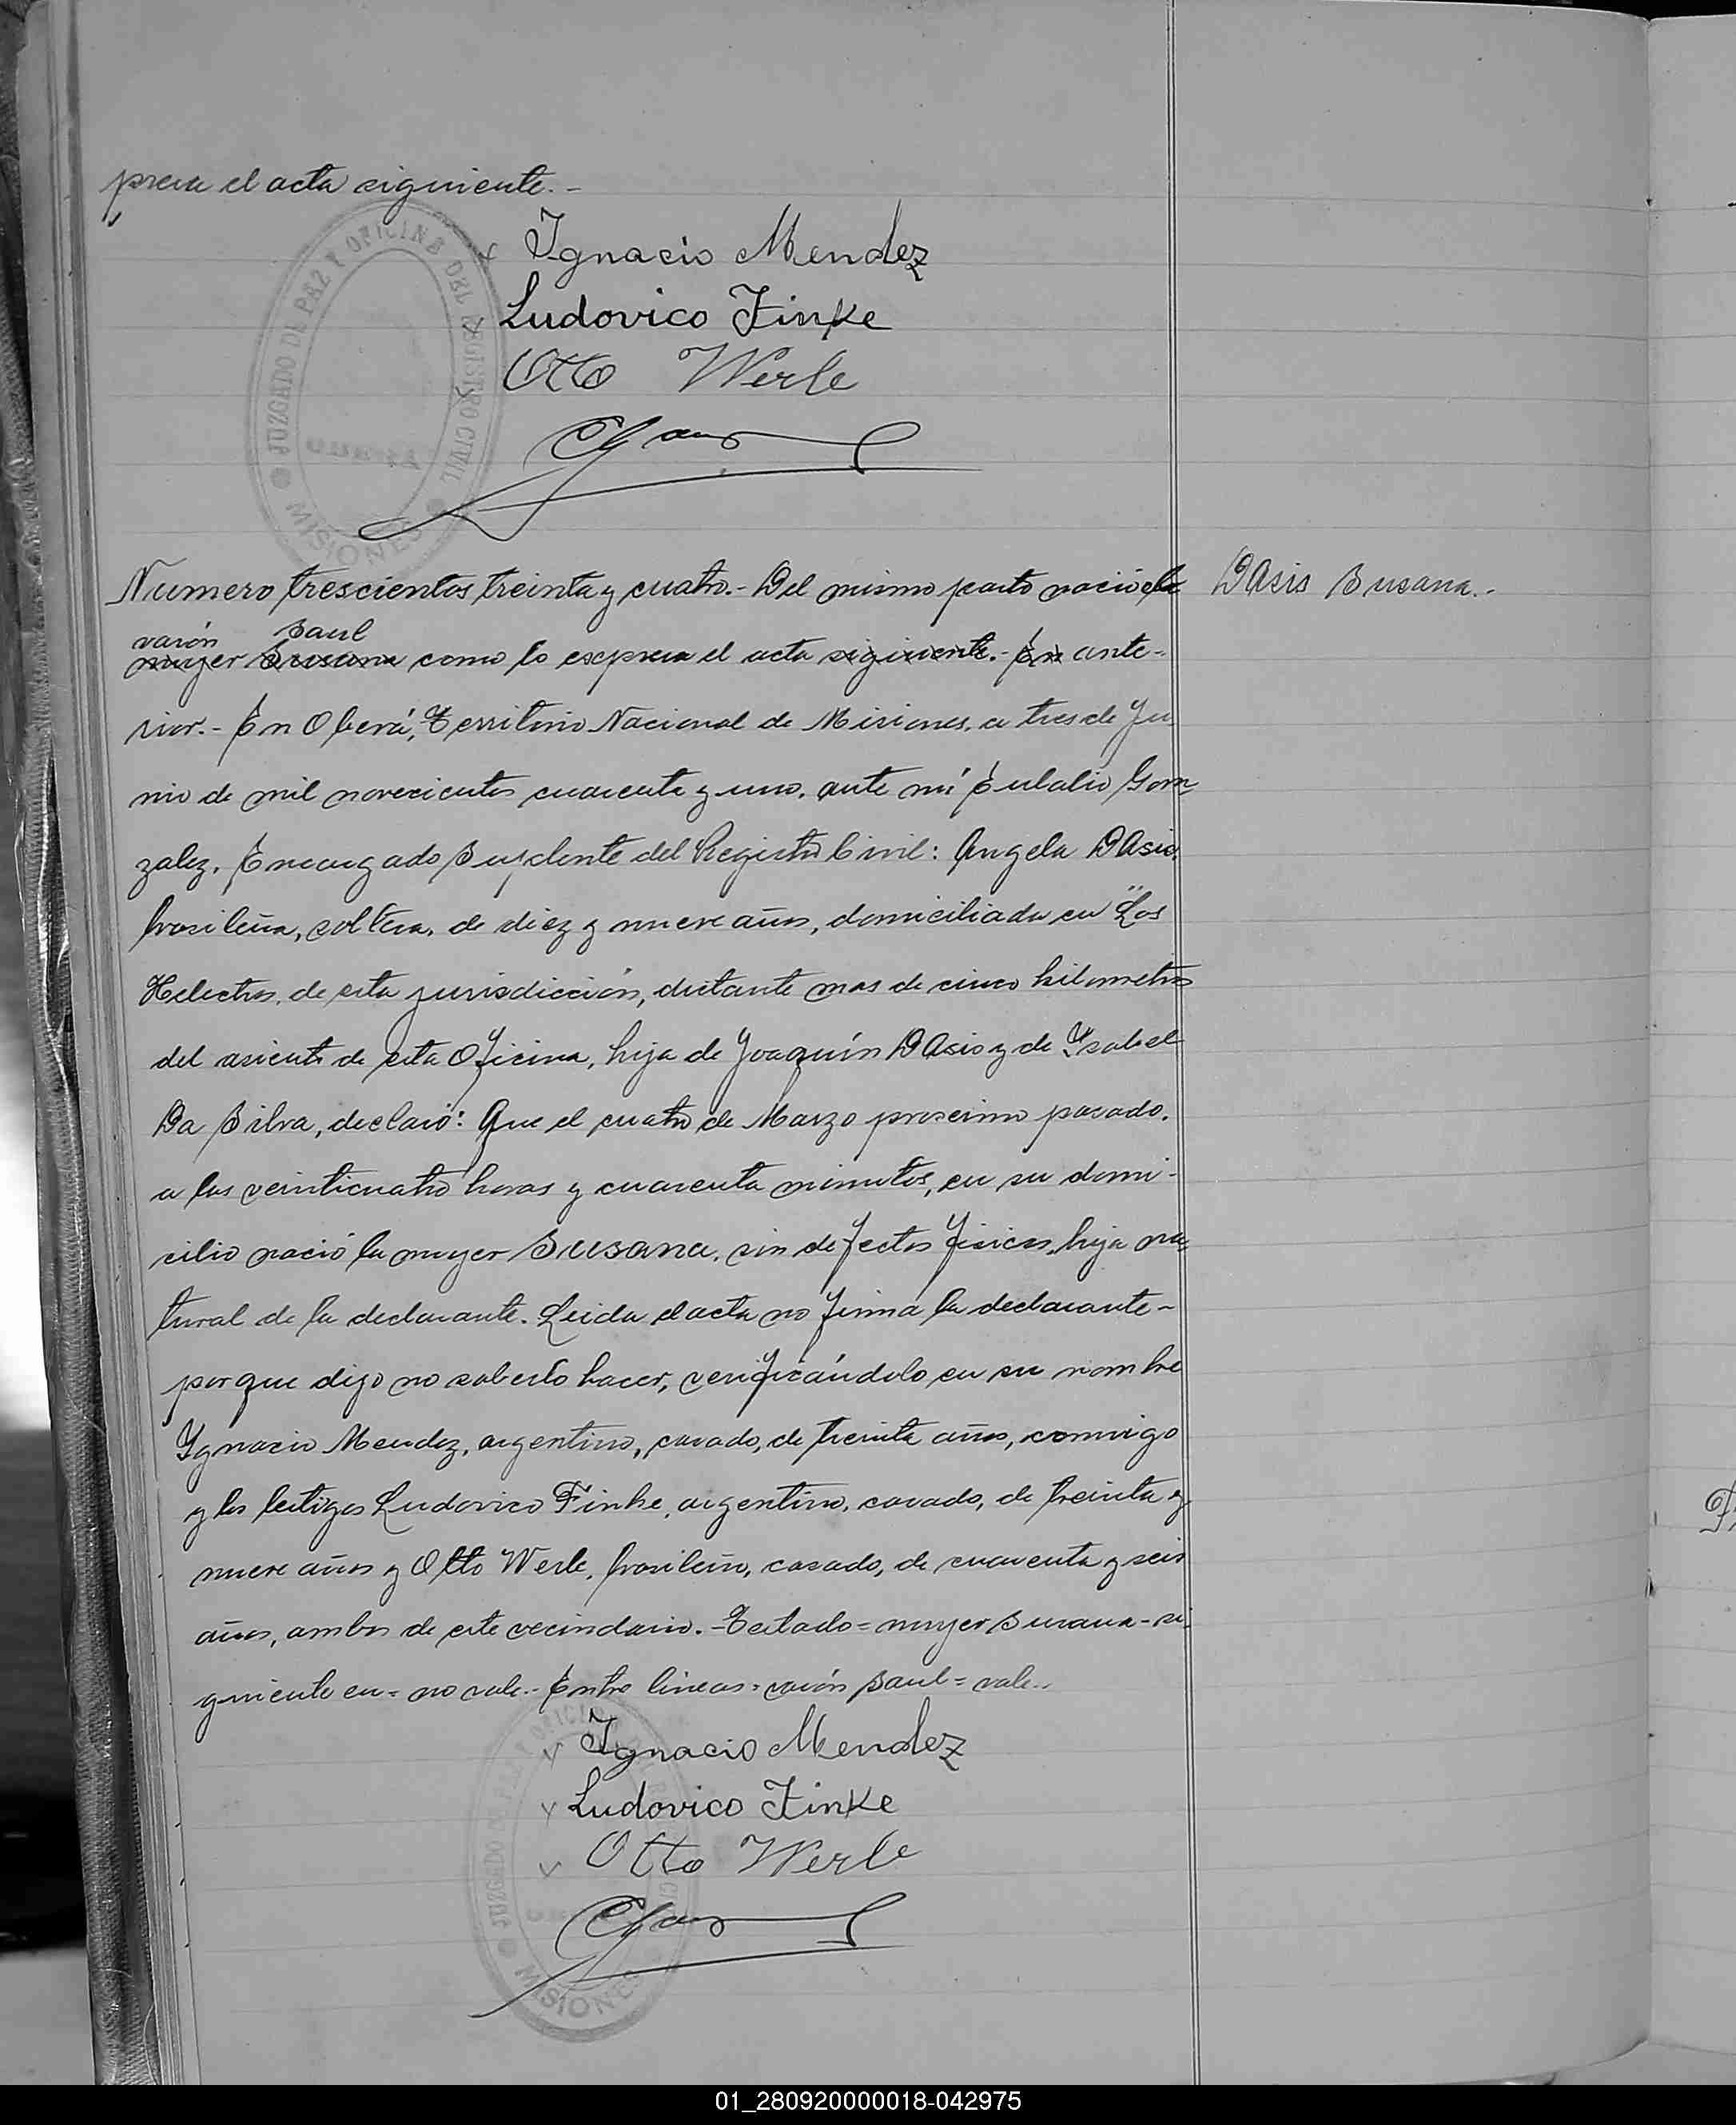 presa el acta siguiente.-
Ignacio Mendez
Ludovico Finke
Otto Werle
JUZGADO DE PAZ Y OFICINA DEL REGISTRO CIVIL
MISIONES
Numero trescientos treinta y cuatro.- Del mismo parto nació el
DAsis Susana.-
varón Saul
mujer Susana como lo expresa el acta siguiente.- En ante-
rior.- En Oberá, Territorio Nacional de Misiones, a tres de Ju
nio de mil novecientos cuarenta y uno, ante mí Eulalio Gon
zalez, Encargado Suplente del Registro Civil: Angela DAsis,
brasileña, soltera, de diez y nueve años, domiciliada en "Los
Helechos, de esta jurisdicción, distante mas de cinco kilometros
del asiento de esta Oficina, hija de Joaquín DAsis y de Ysabel
Da Silva, declaró: Que el cuatro de Marzo proximo pasado,
a las veinticuatro horas y cuarenta minutos, en su domi-
cilio nació la mujer Susana, sin defectos fisicos, hija na
tural de la declarante. Leida el acta no firma la declarante-
porque dijo no saberlo hacer, verificándolo en su nombre
Ygnacio Mendez, argentino, casado, de treinta años, conmigo
y los testigos Ludovico Finke, argentino, casado, de treinta y
nueve años y Otto Werle, brasileño, casado, de cuarenta y seis
años, ambos de este vecindario.- Testado= mujer Susana- si
guiente en= no vale.- Entre lineas= varón Saul= vale.-
Ignacio Mendez
Ludovico Finke
Otto Werle
MISIONES
01_280920000018-042975